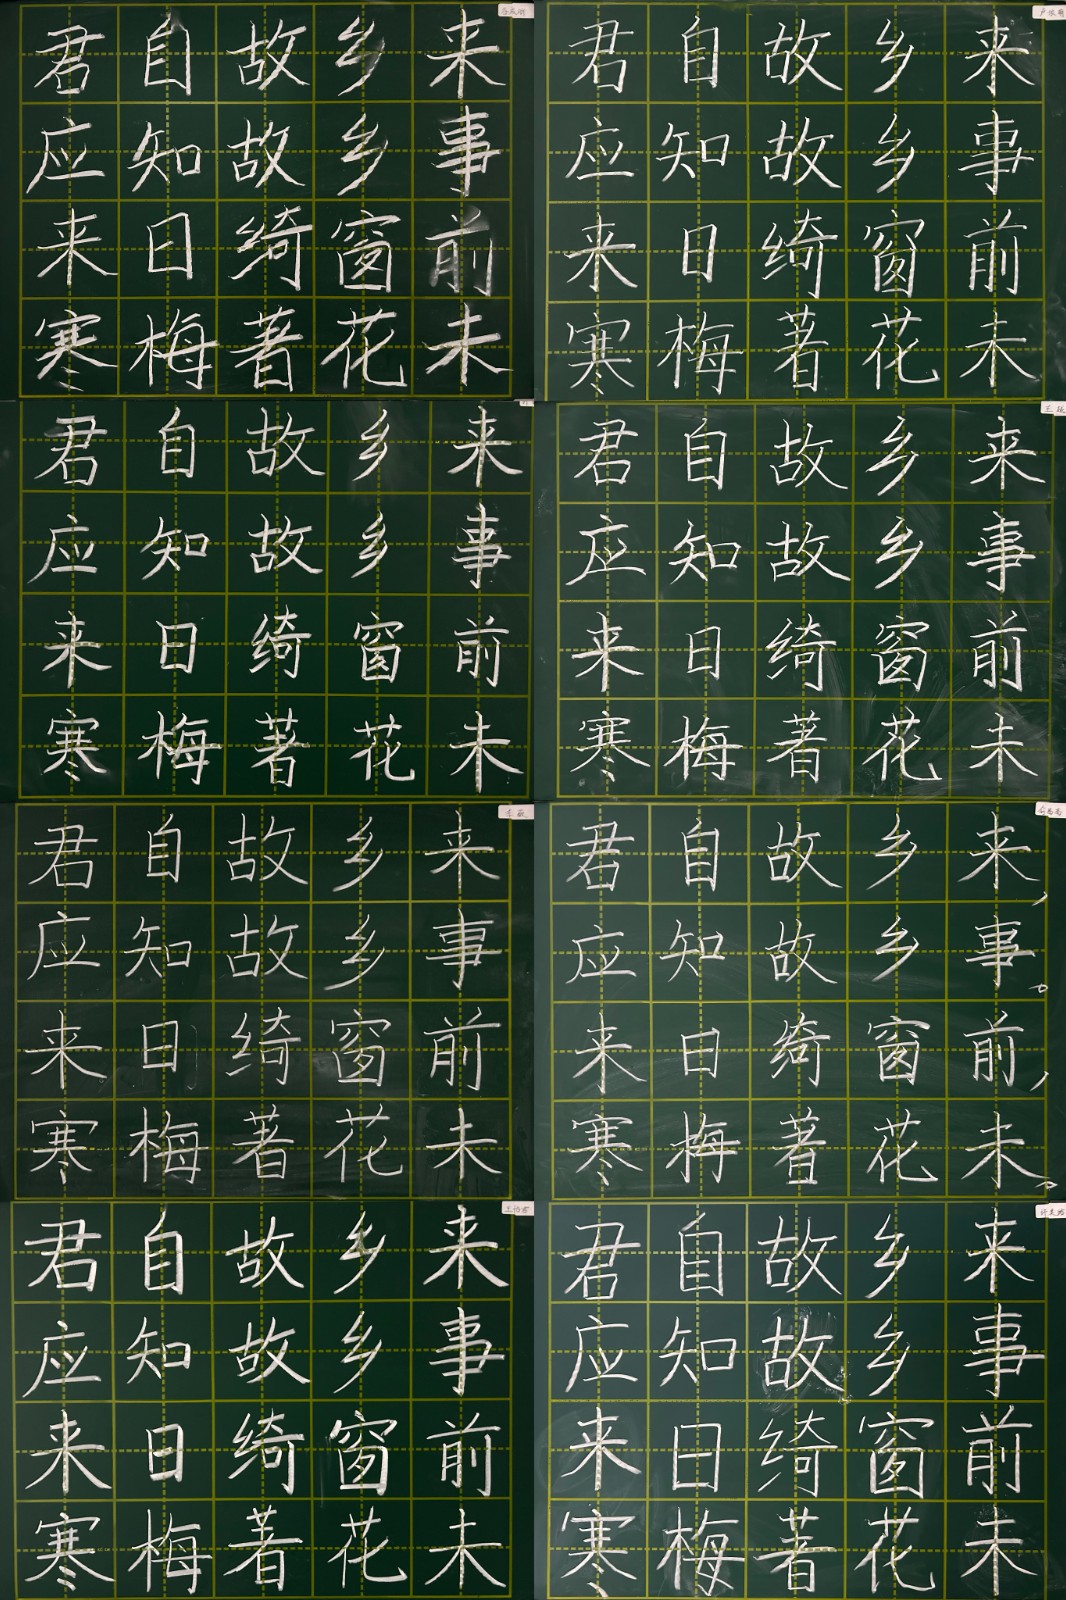 君自故乡来
应知故乡事
来日绮窗前
寒梅著花未
君自故乡来
应知故乡事
来日绮窗前
寒梅著花未
君自故乡来
应知故乡事
来日绮窗前
寒梅著花未
王
君自故乡来
应知故乡事
来日绮窗前
寒梅著花未
君自故乡来
应知故乡事
来日绮窗前
寒梅著花未
君自故乡来，
应知故乡事。
来日绮窗前，
寒梅著花未。
王怡君
君自故乡来
应知故乡事
来日绮窗前
寒梅著花未
君自故乡来
应知故乡事
来日绮窗前
寒梅著花未